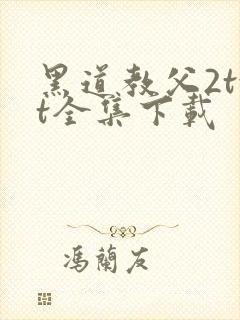 黑道教父2t
t全集下載
馮蘭友